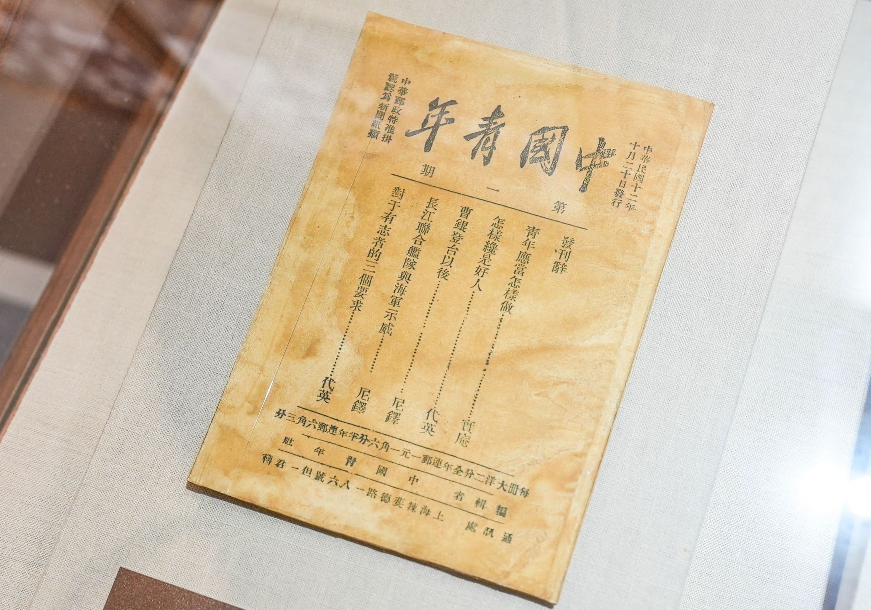 中華民國十二年
十月二十日發行
中國青年
中華郵政特准掛
號認爲新聞紙類
第一期
發刊辭
青年應當怎樣做……實庵
怎樣纔是好人……代英
曹錕登台以後……尼鐸
長江聯合艦隊與海軍示威……尼鐸
對于有志者的三個要求……代英
每期大洋二分全年連郵一元一角六分半年連郵六角三分
編輯者 中國青年社
通訊處 上海辣斐德路一八六號但一君轉